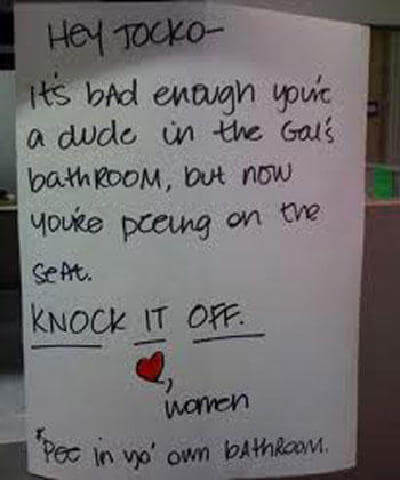 HEY JOCKO-
it's bAd enough you're
a dude in the Gal's
bathROOM, but now
you're peeing on the
seAt.
KNOCK IT OFF.
❤,
women
*Pee in yo' own bAthROOM.